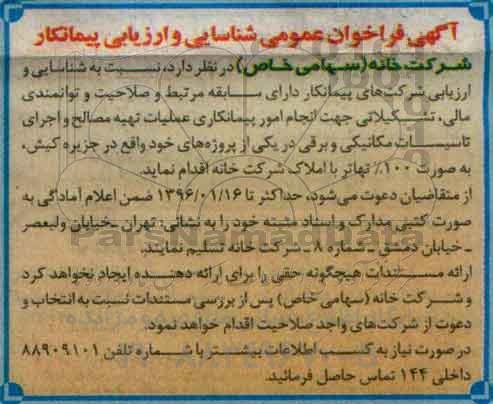 آگهی فراخوان عمومی شناسایی و ارزیابی پیمانکار
شرکت خانه (سهامی خاص) در نظر دارد، نسبت به شناسایی و
ارزیابی شرکت‌های پیمانکار دارای سابقه مرتبط و صلاحیت و توانمندی
مالی، تشکیلاتی جهت انجام امور پیمانکاری عملیات تهیه مصالح و اجرای
تاسیسات مکانیکی و برقی در یکی از پروژه‌های خود واقع در جزیره کیش،
به صورت ۱۰۰٪ تهاتر با املاک شرکت خانه اقدام نماید.
از متقاضیان دعوت می‌شود، حداکثر تا ۱۳۹۶/۰۱/۱۶ ضمن اعلام آمادگی به
صورت کتبی مدارک و اسناد مثبته خود را به نشانی: تهران ـ خیابان ولیعصر
ـ خیابان دمشق ـ شماره ۸ ـ شرکت خانه تسلیم نمایند.
ارائه مستندات هیچگونه حقی را برای ارائه دهنده ایجاد نخواهد کرد
و شرکت خانه (سهامی خاص) پس از بررسی مستندات نسبت به انتخاب و
دعوت از شرکت‌های واجد صلاحیت اقدام خواهد نمود.
در صورت نیاز به کسب اطلاعات بیشتر با شماره تلفن ۸۸۹۰۹۱۰۱
داخلی ۱۴۴ تماس حاصل فرمائید.